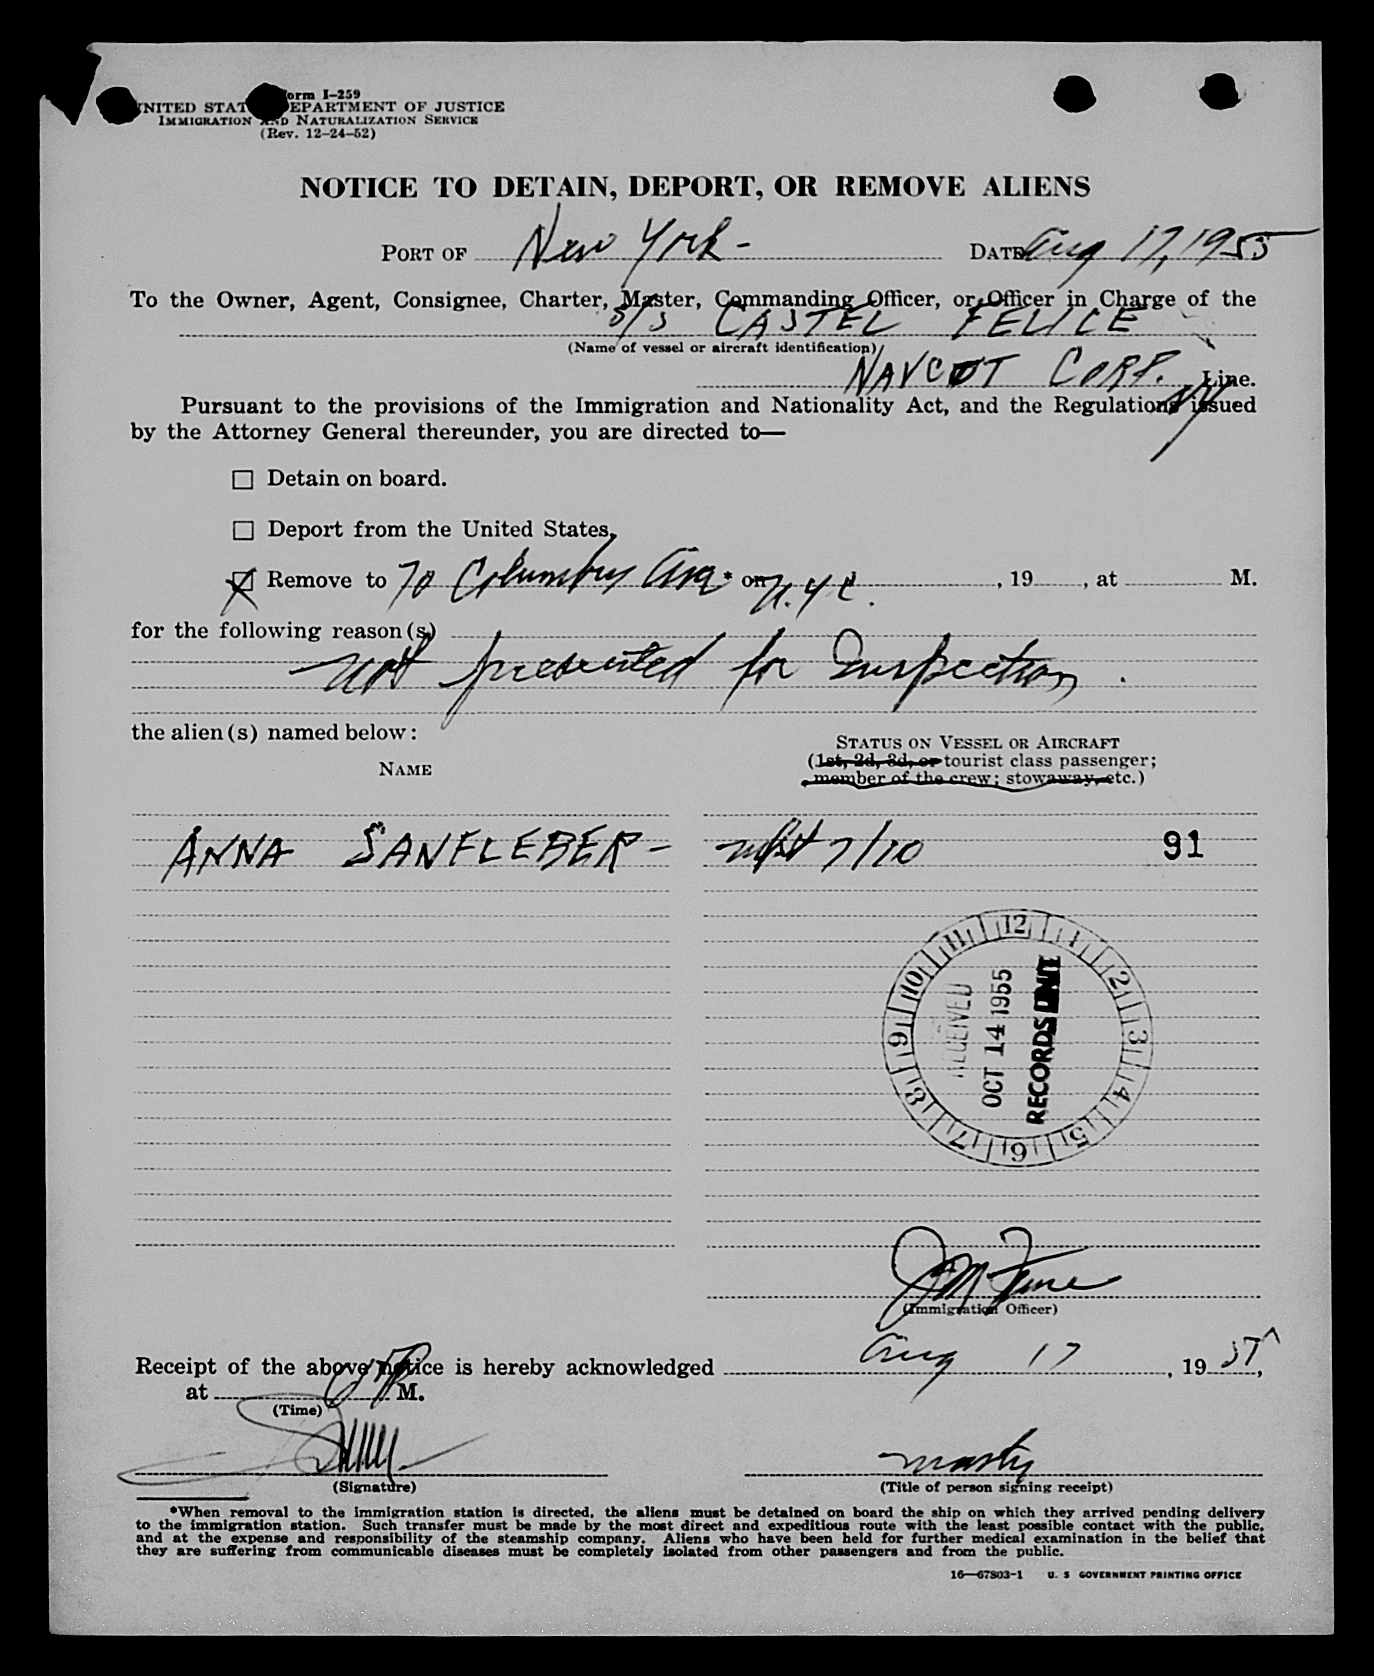 Form I-259
UNITED STATES DEPARTMENT OF JUSTICE
IMMIGRATION AND NATURALIZATION SERVICE
(Rev. 12-24-52)
NOTICE TO DETAIN, DEPORT, OR REMOVE ALIENS
PORT OF New York - DATE Aug 17, 1955
To the Owner, Agent, Consignee, Charter, Master, Commanding Officer, or Officer in Charge of the
S/S CASTEL FELICE
(Name of vessel or aircraft identification)
NAVCOT CORP. Line.
NY
Pursuant to the provisions of the Immigration and Nationality Act, and the Regulations issued
by the Attorney General thereunder, you are directed to—
Detain on board.
Deport from the United States.
Remove to 70 Columbus Ave * on N.Y.C. , 19 , at M.
for the following reason(s)
Not presented for Inspection.
the alien(s) named below:
STATUS ON VESSEL OR AIRCRAFT
(1st, 2d, 3d, or tourist class passenger;
NAME
member of the crew; stowaway, etc.)
ANNA SANFLEBER - 7/10 91
12 1 2 3 4 5 6 7 8 9 10 11
RECEIVED
OCT 14 1955
RECORDS UNIT
(Immigration Officer)
Receipt of the above notice is hereby acknowledged Aug 17, 19 55,
at M.
(Time)
(Signature) (Title of person signing receipt)
*When removal to the immigration station is directed, the aliens must be detained on board the ship on which they arrived pending delivery
to the immigration station. Such transfer must be made by the most direct and expeditious route with the least possible contact with the public,
and at the expense and responsibility of the steamship company. Aliens who have been held for further medical examination in the belief that
they are suffering from communicable diseases must be completely isolated from other passengers and from the public.
16—67803-1 U. S GOVERNMENT PRINTING OFFICE